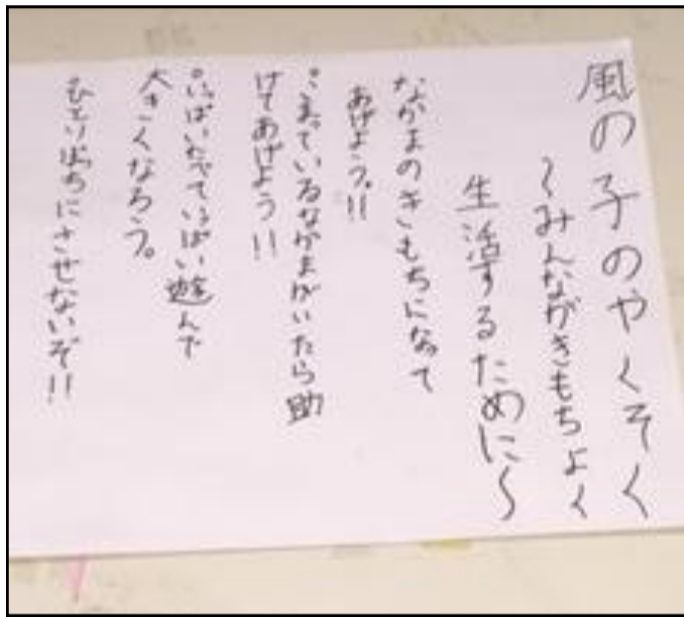 風の子のやくそく
～みんながきもちよく
生活するために～
なかまのきもちになって
あげよう!!
・こまっているなかまがいたら助
けてあげよう!!
・いっぱいたべていっぱい遊んで
大きくなろう。
ひとりぼっちにさせないぞ!!